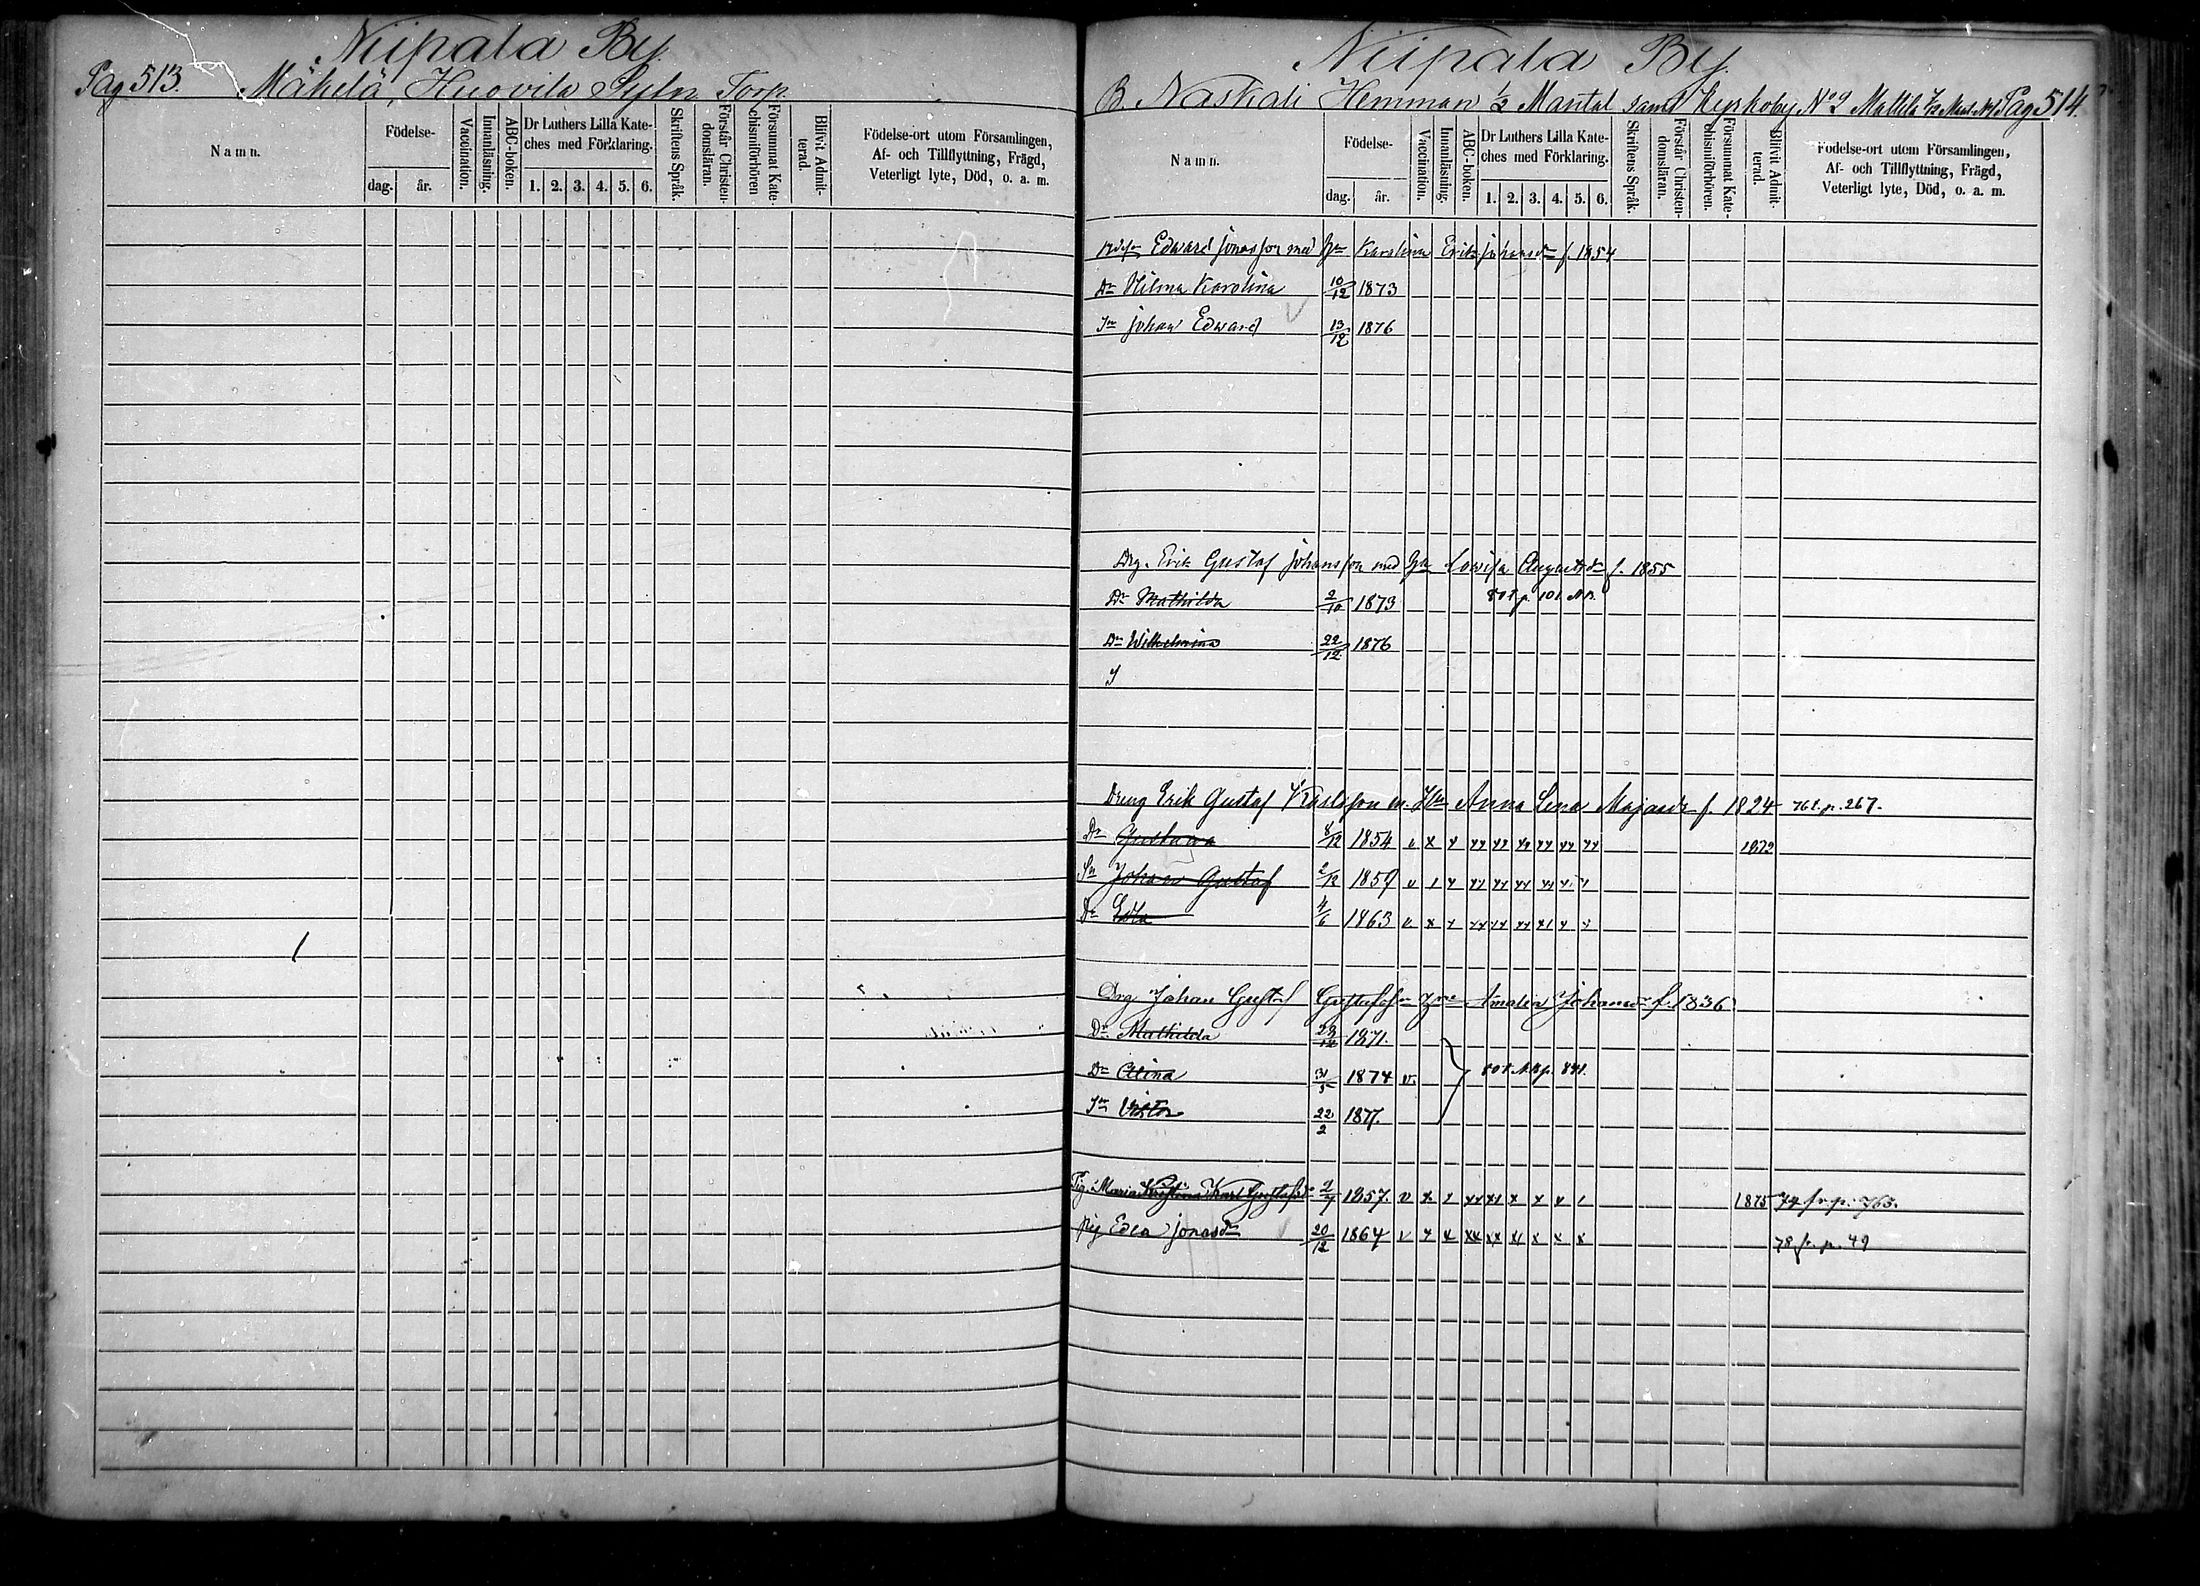 Niipala By.
Pag 513. Mäkelä, Huovila Torp.
Namn.
Födelse-
dag. år.
Vaccination.
Innanläsning.
ABC-boken.
Dr Luthers Lilla Kate-
ches med Förklaring.
1. 2. 3. 4. 5. 6.
Skriftens Språk.
Förstår Christen-
domsläran.
Försummat Kate-
chismiförhören.
Blifvit Admit-
terad.
Födelse-ort utom Församlingen,
Af- och Tillflyttning, Frägd,
Veterligt lyte, Död, o. a. m.
Niipala By.
B Naskali Hemman 1/2 Mantal samt Kyrkoby No 2 Mattila 1/2 Mant. No 1 Pag 514.
Namn.
Födelse-
dag. år.
Vaccination.
Innanläsning.
ABC-boken.
Dr Luthers Lilla Kate-
ches med Förklaring.
1. 2. 3. 4. 5. 6.
Skriftens Språk.
Förstår Christen-
domsläran.
Försummat Kate-
chismiförhören.
Blifvit Admit-
terad.
Födelse-ort utom Församlingen,
Af- och Tillflyttning, Frägd,
Veterligt lyte, Död, o. a. m.
Edward Jonasson med Karolina Erik Johansdr f. 1854
Dr Hilma Karolina 10/12 1873
Sn Johan Edward 13/12 1876
Drg. Erik Gustaf Johansson med Hu Lowisa Augustsdr f. 1855
Dr Mathilda 2/10 1873 80 t. p. 101. N.B.
Dr Wilhelmina 22/12 1876
S
Dreng Erik Gustaf Karlsson m. Hu Anna Lena Majasdr f. 1824 76 t. p. 267.
Dr Gustawa 8/12 1854 v x x xx xx xx xx xx xx 1872
Sn Johan Gustaf 2/12 1859 v x x xx xx xx xx x x
Dr Edla 4/6 1863 v x x xx xx xx xx x x
Drg Johan Gustaf Gustafsson Amalia Johansdr f. 1836
Dr Mathilda 23/12 1871.
Dr Alina 31/5 1874 v. 80 t. N.B p. 841.
Sn Viktor 22/2 1877.
Pig. Maria Kristina Karl Gustafsdr 2/7 1857. v x x xx xx x x x x 1875 74 fr. p. 763.
Pig Edla Jonasdr 20/12 1864 v x x xx xx xx x x x 78 fr. p. 49